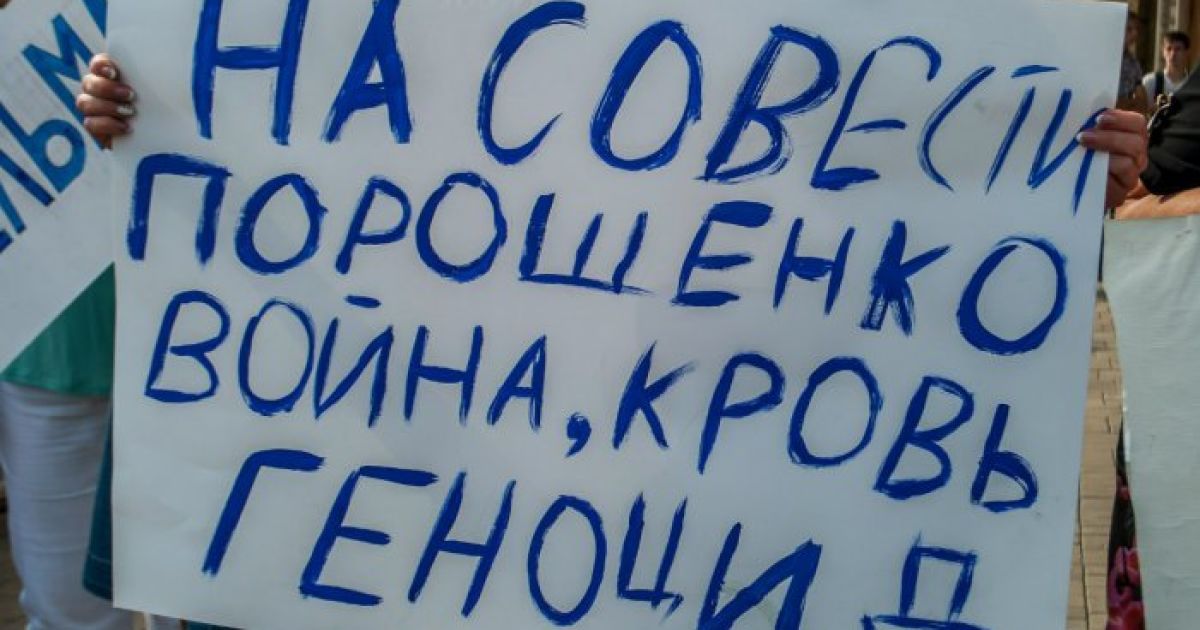 НА СОВЕСТИ
ПОРОШЕНКО
ВОЙНА, КРОВЬ
ГЕНОЦИД